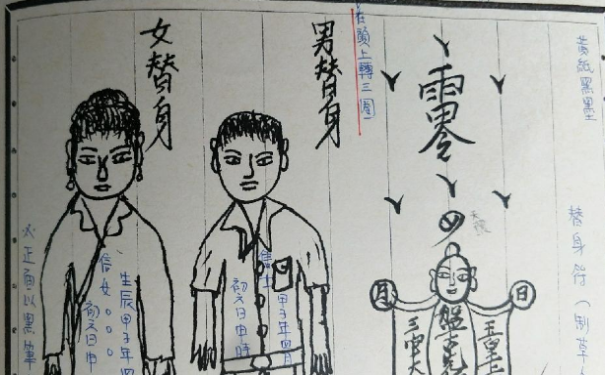 黃紙黑墨
替身符(制草人
在頭上轉三圈
男替身
女替身
零
日
月
玉皇
盤古
三官大
信士
甲子年四月
初六日申時
生辰甲子年四
初六日申
信女○○○
正面以黑筆